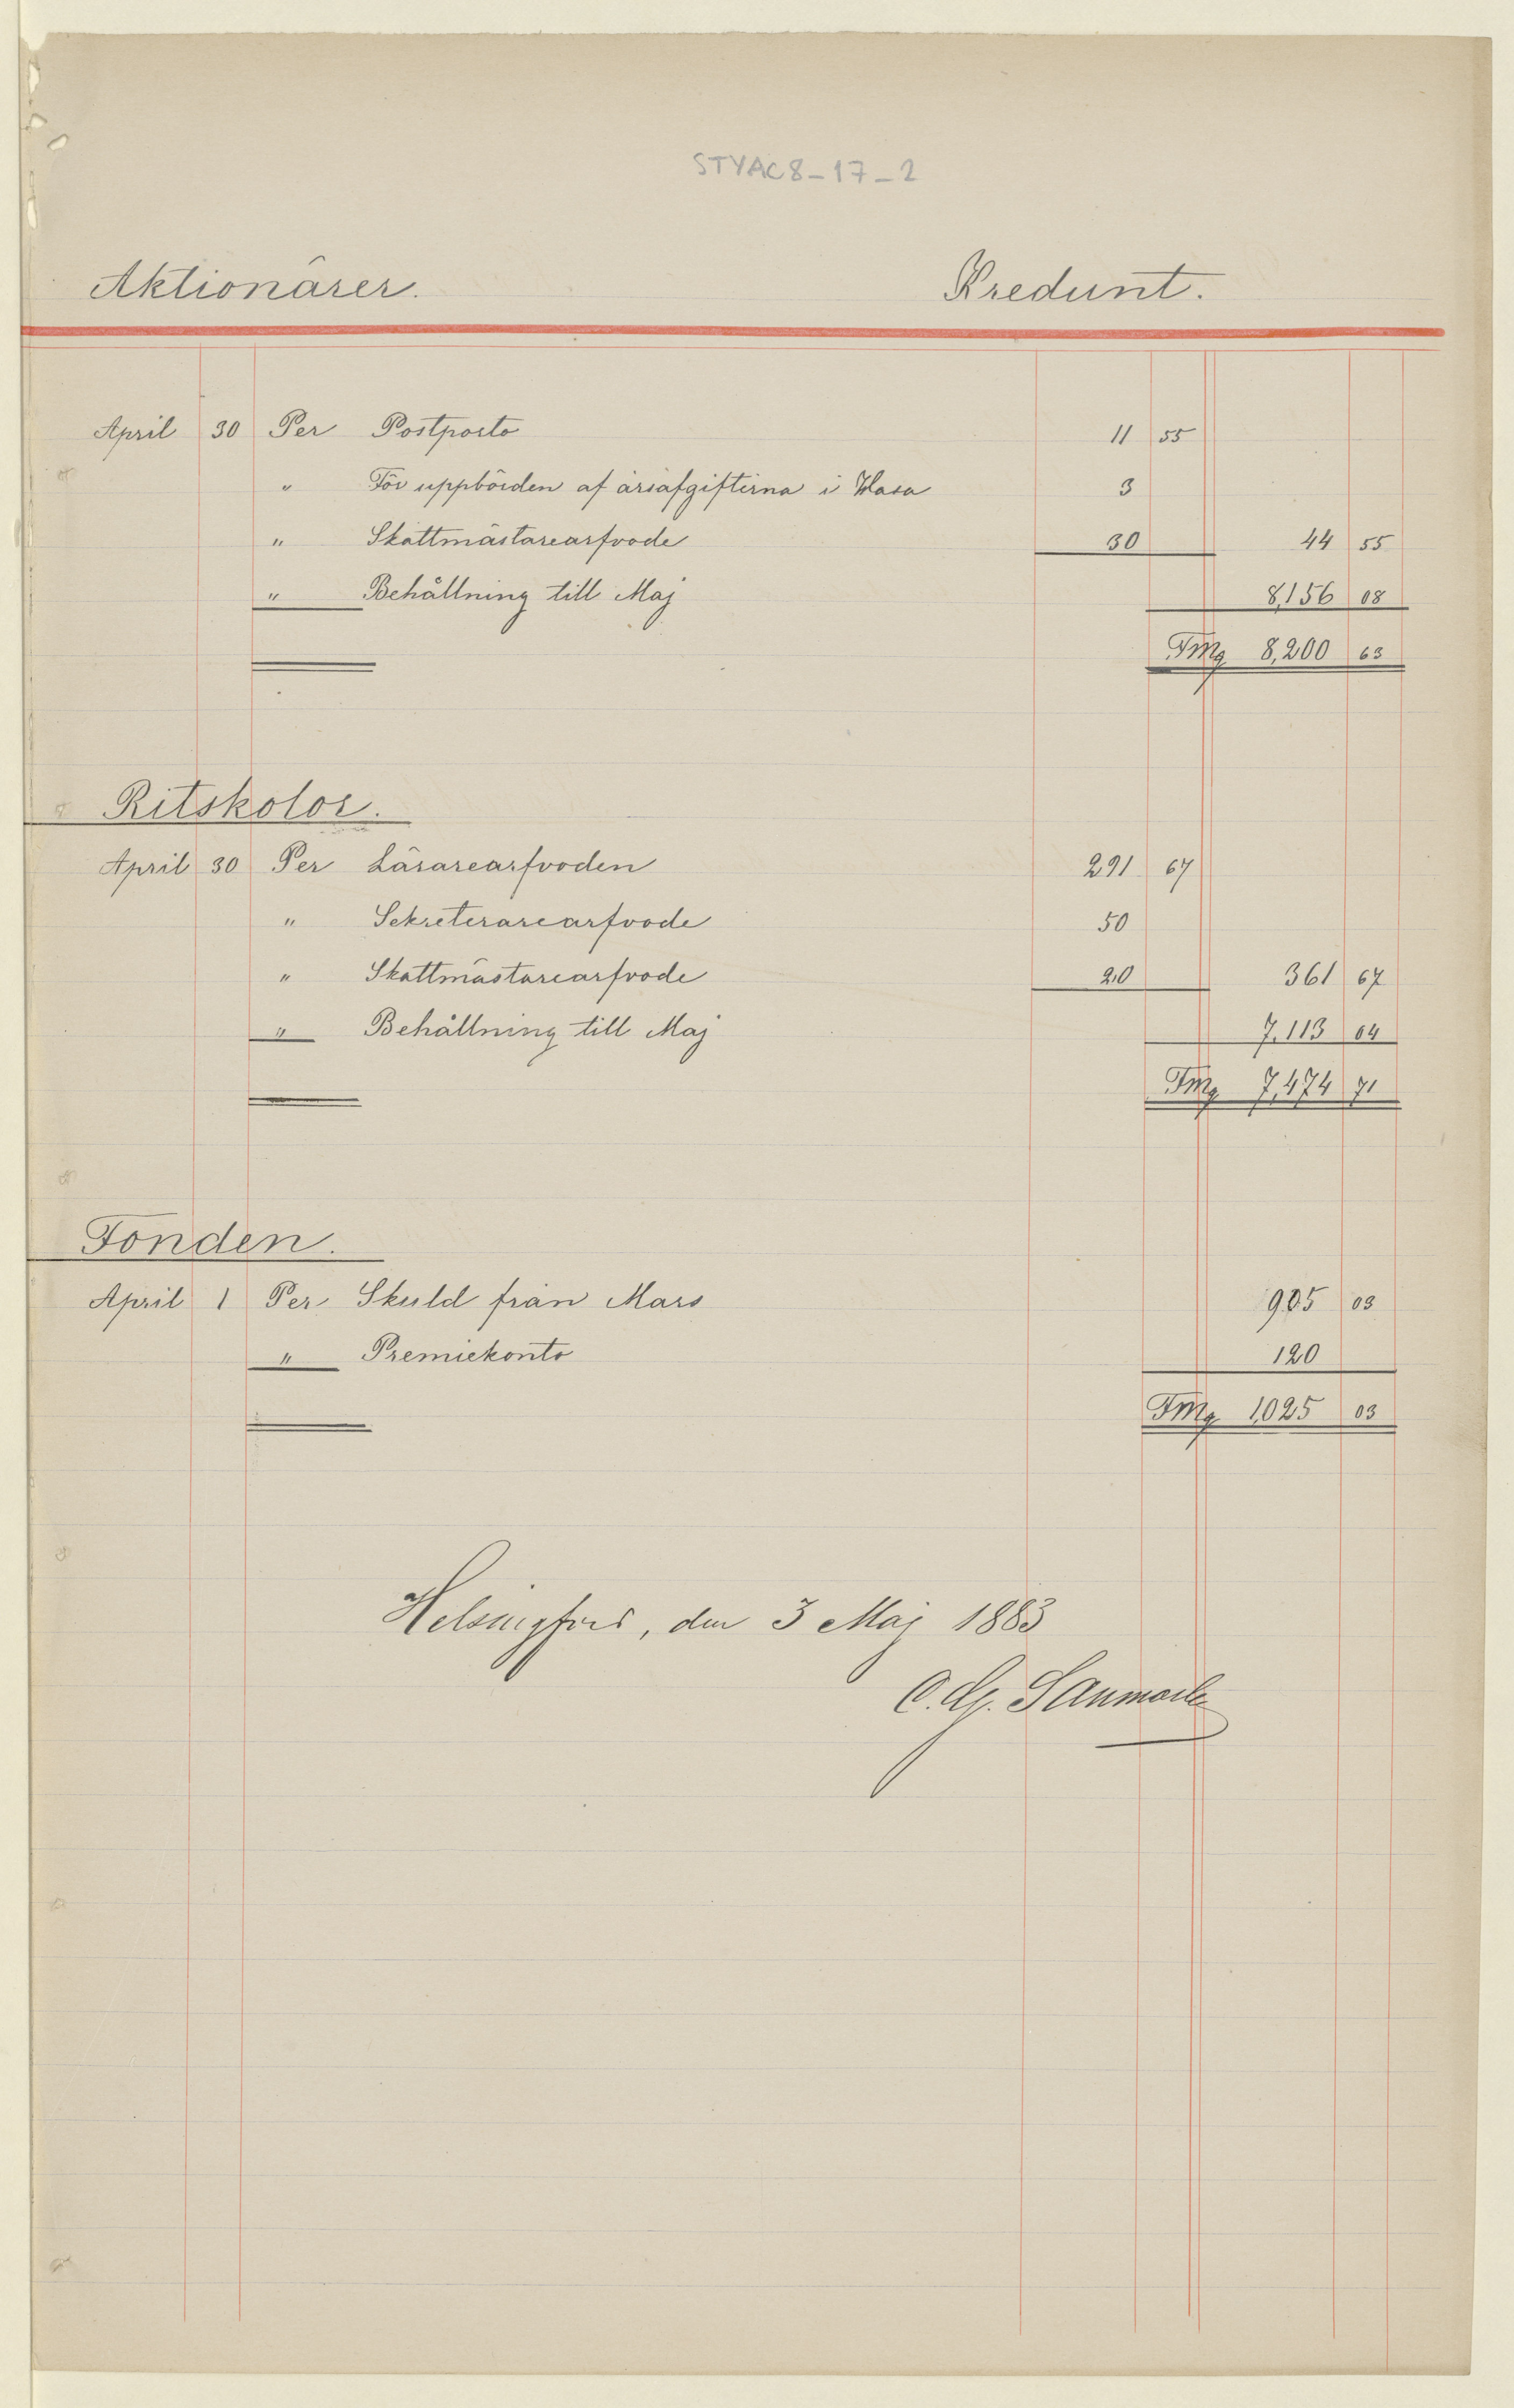 STYAC8-17-2
Aktionärer. Kredunt.
April 30 Per Postporto 11 55
" För uppbörden af årsafgifterna i Wasa 3
" Skattmästarearfvode 30 44 55
" Behållning till Maj 8,156 08
Fmg 8,200 63
Ritskolor.
April 30 Per Lärarearfvoden 291 67
" Sekreterarearfvode 50
" Skattmästarearfvode 20 361 67
" Behållning till Maj 7,113 04
Fmg 7,474 71
Fonden.
April 1 Per Skuld från Mars 905 03
" Premiekonto 120
Fmg 1,025 03
Helsingfors, den 3 Maj 1883
C. G. Sanmark